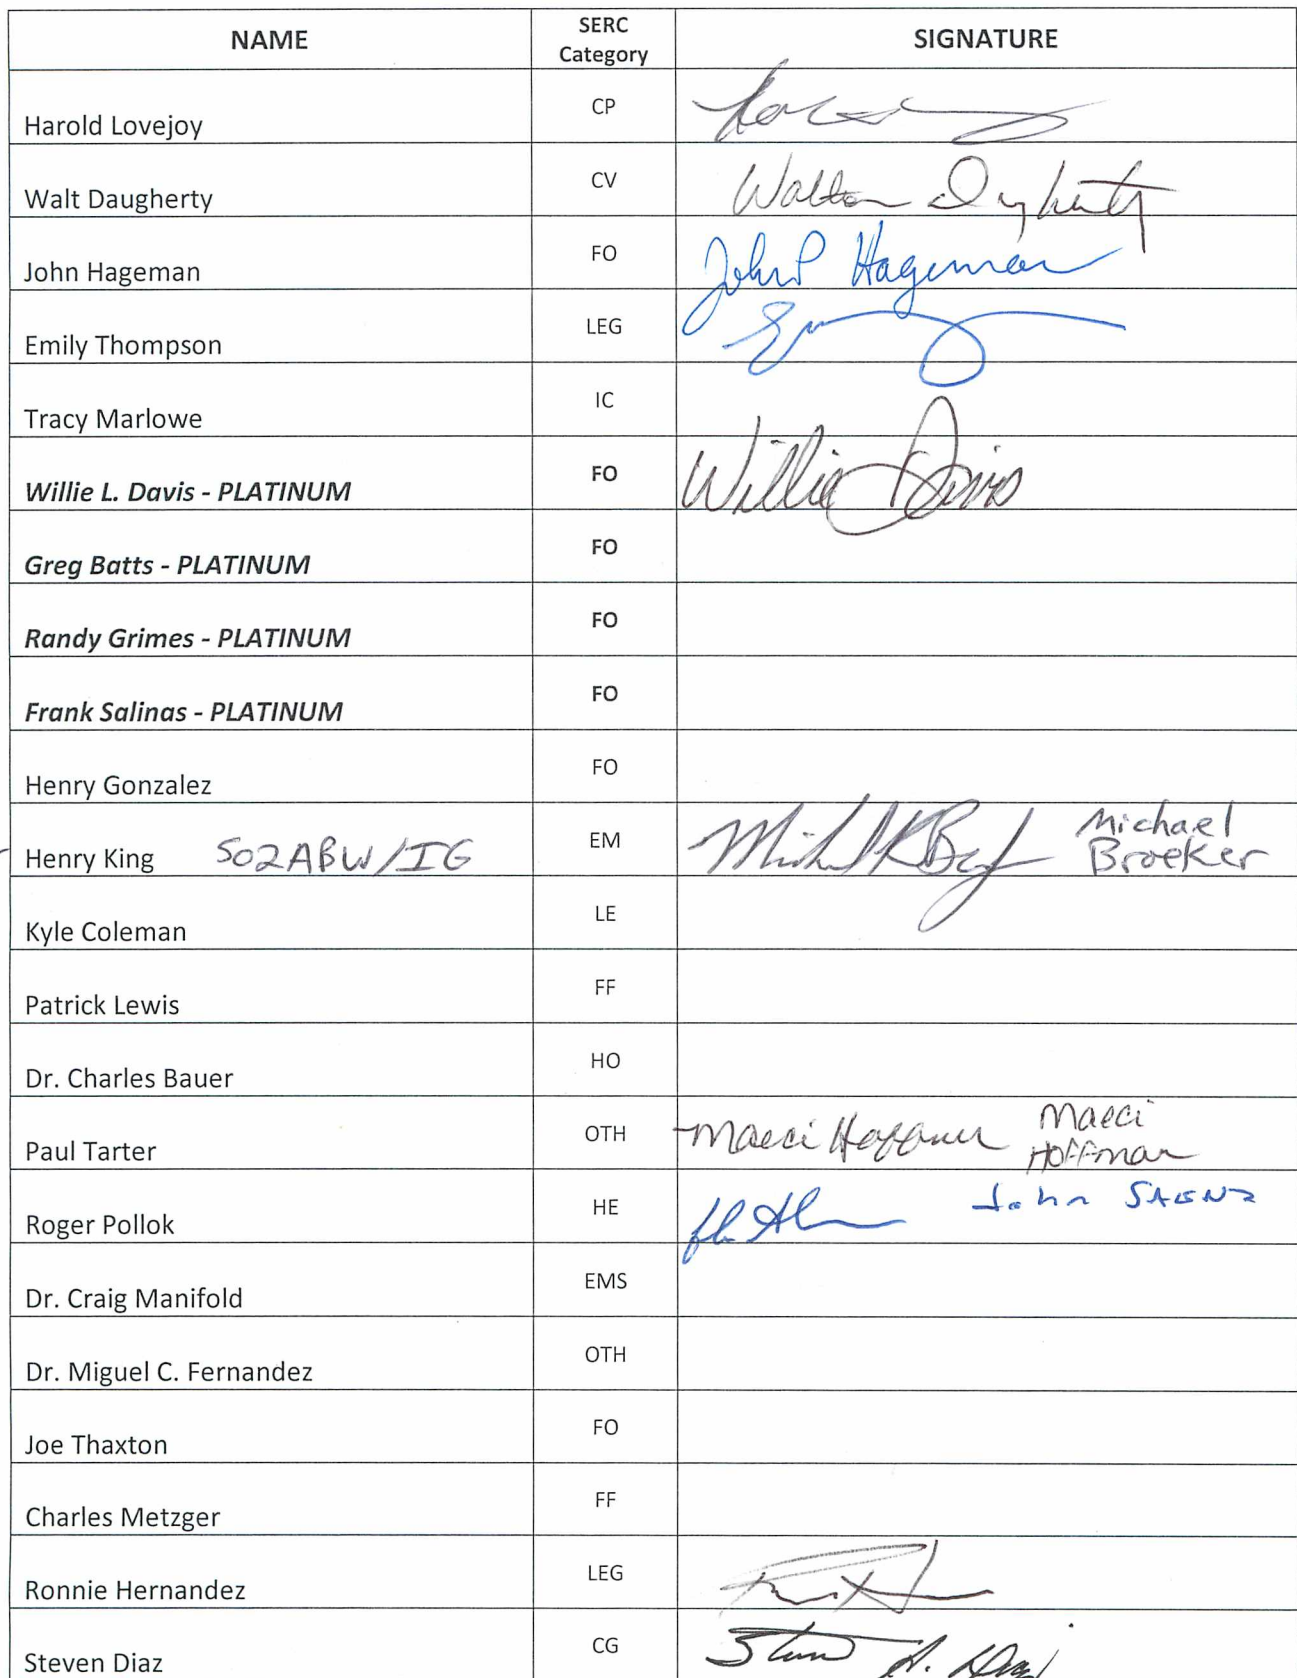 NAME SERC Category SIGNATURE
Harold Lovejoy CP
Walt Daugherty CV Walton Daugherty
John Hageman FO John P Hageman
Emily Thompson LEG
Tracy Marlowe IC
Willie L. Davis - PLATINUM FO Willie Davis
Greg Batts - PLATINUM FO
Randy Grimes - PLATINUM FO
Frank Salinas - PLATINUM FO
Henry Gonzalez FO
Henry King 502ABW/IG EM Michael Broeker
Kyle Coleman LE
Patrick Lewis FF
Dr. Charles Bauer HO
Paul Tarter OTH Maeci Hoffman Maeci Hoffman
Roger Pollok HE John SAENZ
Dr. Craig Manifold EMS
Dr. Miguel C. Fernandez OTH
Joe Thaxton FO
Charles Metzger FF
Ronnie Hernandez LEG
Steven Diaz CG Steven A. Diaz